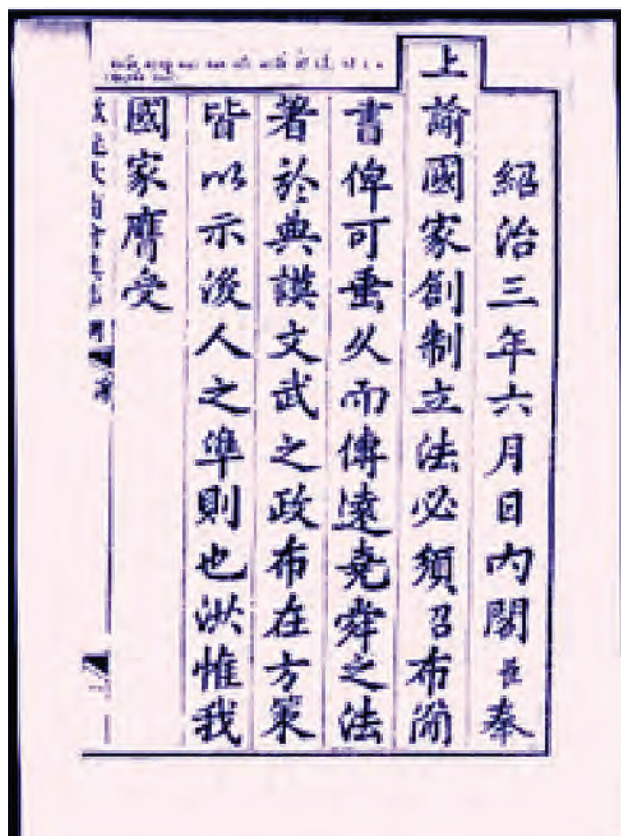 紹治三年六月日內閣臣奉
上諭國家創制立法必須召布簡
書俾可垂久而傳遠堯舜之法
著於典謨文武之政布在方策
皆以示後人之準則也洪惟我
國家膺受